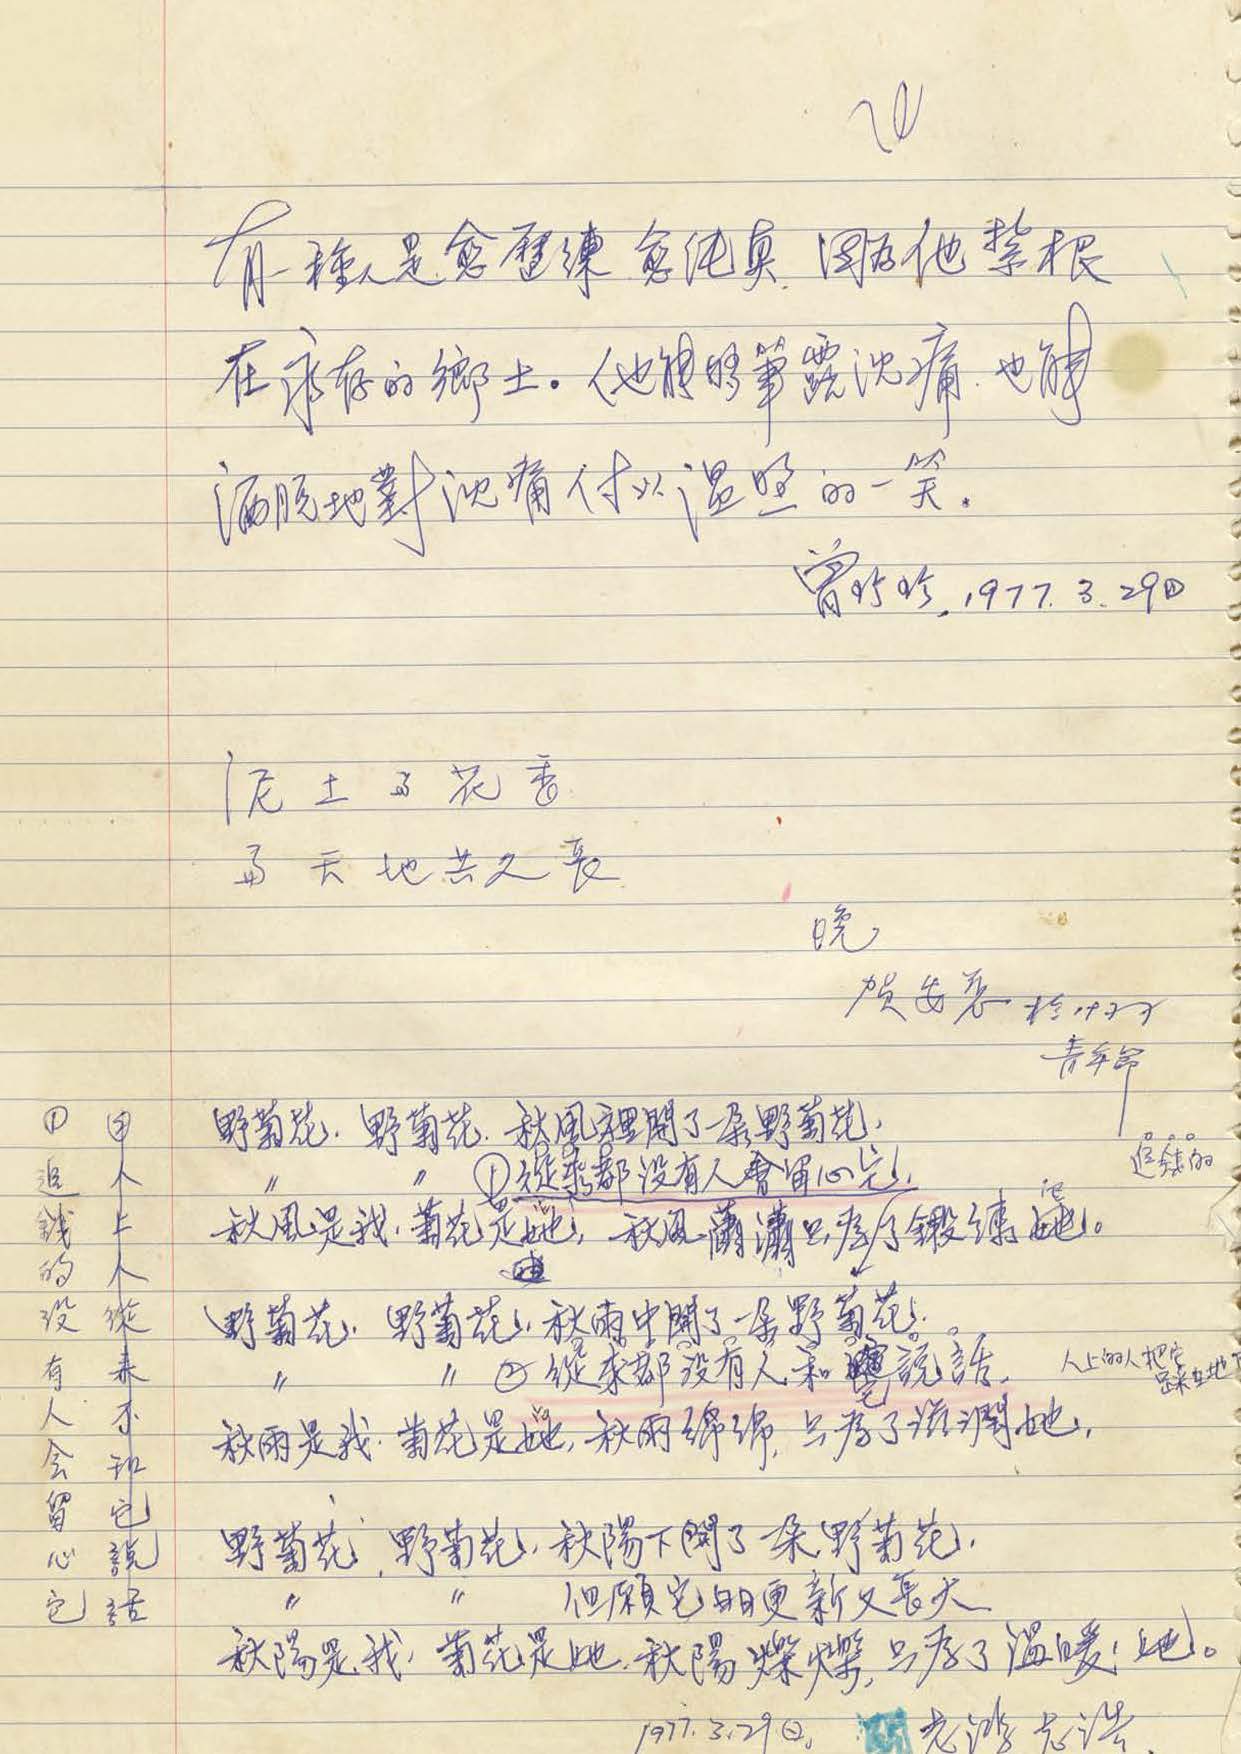 有一種人是愈歷練愈純真,因為他紮根
在永存的鄉土。他能夠筆露沈痛,也能
洒脫地對沈痛付以溫煦的一笑。
曾珍珍. 1977. 3. 29日
泥土與花香
與天地共久長
晚
青年節
野菊花,野菊花,秋風裡開了一朵野菊花,
〃 〃 ①從來都沒有人會留心它,
秋風是我,菊花是她,秋風蕭蕭只為了鍛練她。
追錢的
野菊花,野菊花,秋雨中開了一朵野菊花,
〃 〃 ②從來都沒有人和它說話,
人上的人把它
踩在地下
秋雨是我,菊花是她,秋雨綿綿,只為了滋潤她,
野菊花,野菊花,秋陽下開了一朵野菊花,
〃 〃 但願它日日更新又長大
秋陽是我,菊花是她,秋陽燦燦,只為了溫暖她。
1977.3.29日
人上人從來不和它說話
①追錢的沒有人会留心它